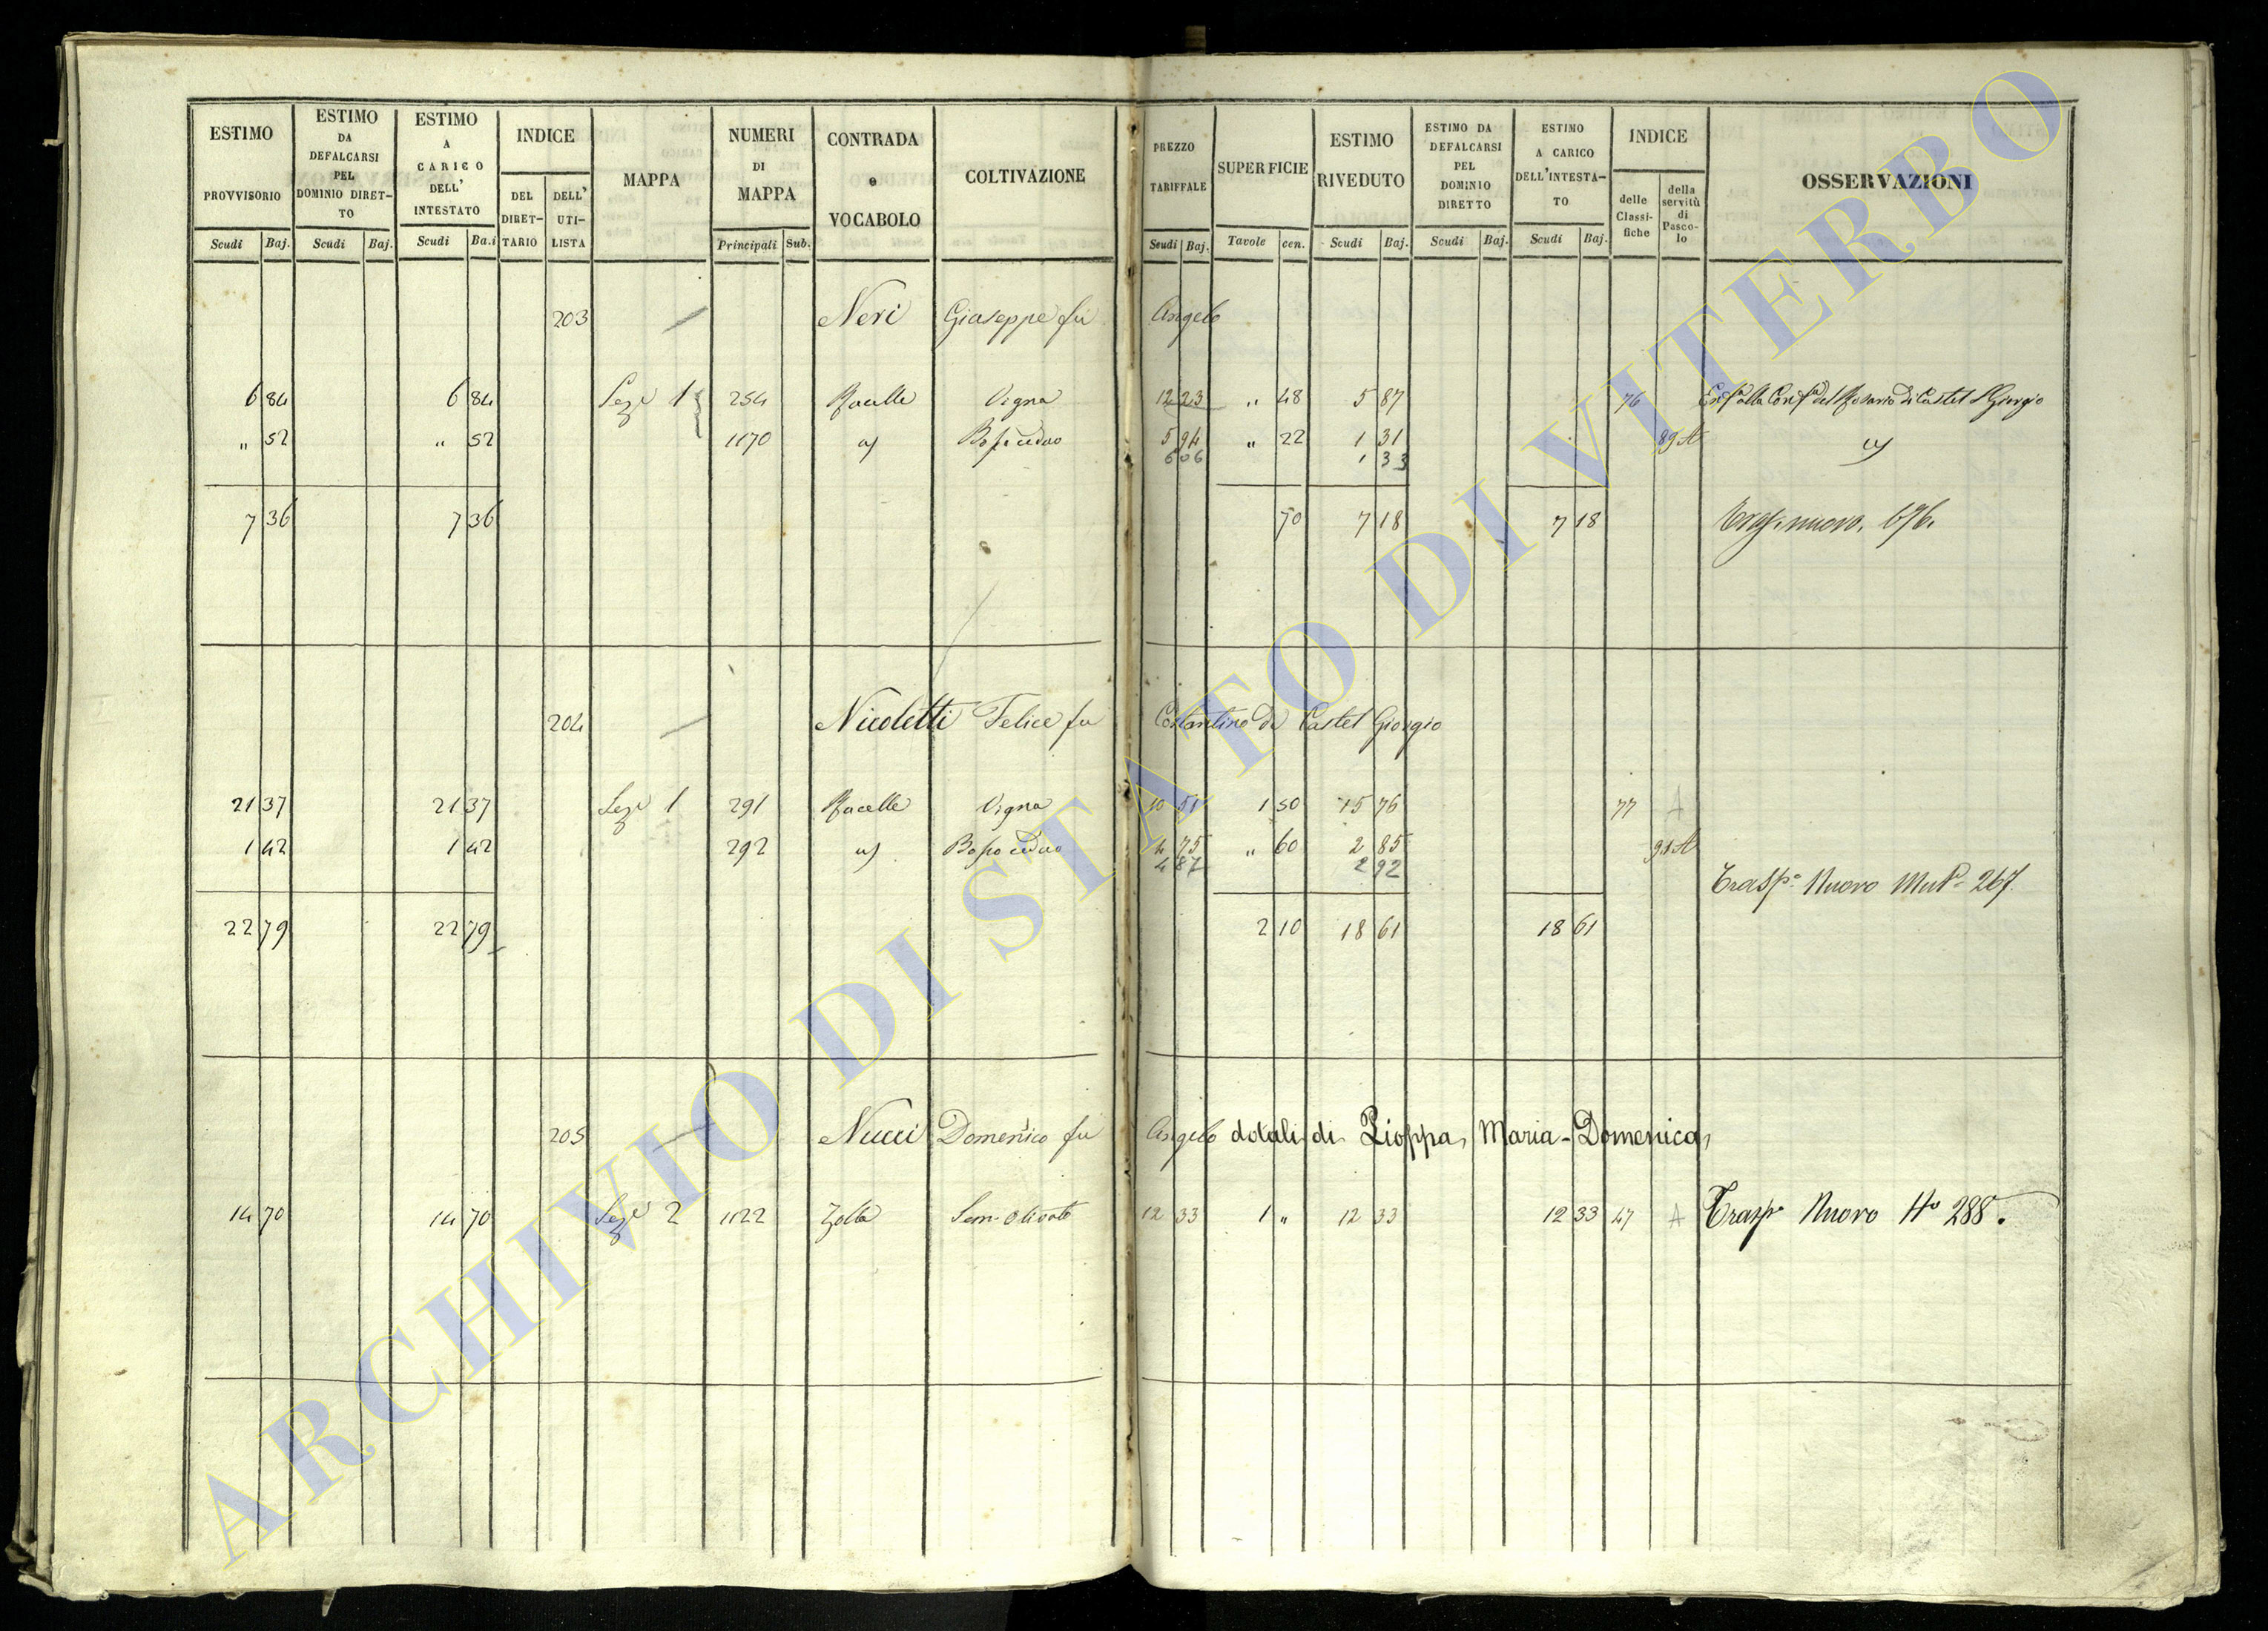 ESTIMO PROVVISORIO Scudi Baj.
ESTIMO DA DEFALCARSI PEL DOMINIO DIRET- TO Scudi Baj.
ESTIMO A CARICO DELL' INTESTATO Scudi Ba.i
INDICE DEL DIRET- TARIO DELL' UTI- LISTA
MAPPA
NUMERI DI MAPPA Principali Sub.
CONTRADA e VOCABOLO
COLTIVAZIONE
PREZZO TARIFFALE Scudi Baj.
SUPERFICIE Tavole cen.
ESTIMO RIVEDUTO Scudi Baj.
ESTIMO DA DEFALCARSI PEL DOMINIO DIRETTO Scudi Baj.
ESTIMO A CARICO DELL'INTESTA- TO Scudi Baj.
INDICE delle Classi- fiche della servitù di Pasco- lo
OSSERVAZIONI
203 Neri Giuseppe fu Angelo
6 84 6 84 Sez.e 1 254 Vigna 12 23 " 48 5 87 76 del Rosario di Castel Giorgio
" 52 " 52 1170 5 94 " 22 1 31 89 A
6 06 1 33
7 36 7 36 70 7 18 7 18 nuovo. 676.
204 Nicoletti Felice fu Costantino di Castel Giorgio
21 37 21 37 Sez.e 1 291 Vigna 10 51 1 50 15 76 77 A
1 42 1 42 292 Bosso ceduo 4 75 " 60 2 85 91 A
4 87 2 92
Trasp.o Nuovo 267.
22 79 22 79 2 10 18 61 18 61
205 Nucci Domenico fu Angelo dotali di Pioppa, Maria-Domenica,
14 70 14 70 Sez.e 2 1122 Zolla Sem. Olivato 12 33 1 " 12 33 12 33 47 A Trasp.o Nuovo N.o 288.
ARCHIVIO DI STATO DI VITERBO